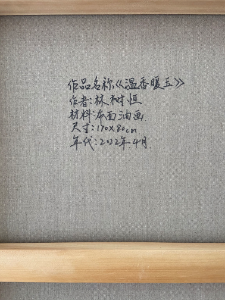 作品名称《温香暖玉》
作者:林树恒
材料:布面油画
尺寸:170x80cm
年代:2022年4月